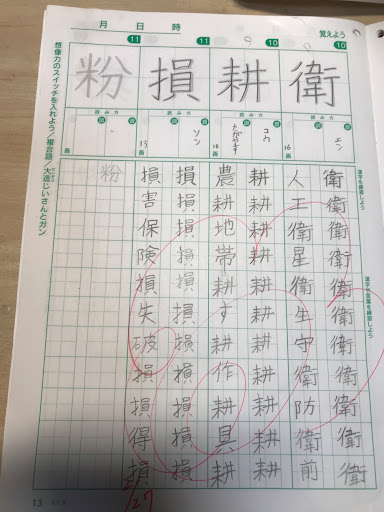 月 日 時
覚えよう
10
衛
読み方
16画
10
耕
読み方
コウ
たがやす
10画
11
損
読み方
ソン
13画
11
粉
読み方
画
漢字を練習しよう
漢字や言葉を練習しよう
衛衛衛衛衛衛衛衛衛衛衛
人工衛星衛生守衛防衛前
耕耕耕耕耕耕耕耕耕耕耕
農耕地帯耕す耕作耕具耕
損損損損損損損損損損損
損害保険損失破損損得損
粉
想像力のスイッチを入れよう/複合語/大造じいさんとガン
2/27
13